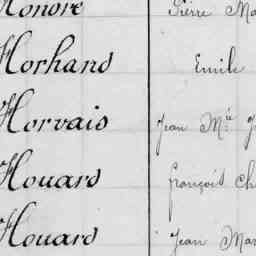 Honoré Pierre Ma
Horhand Emile
Horvais Jean Mie J
Houard françois Ch
Houard Jean Mar